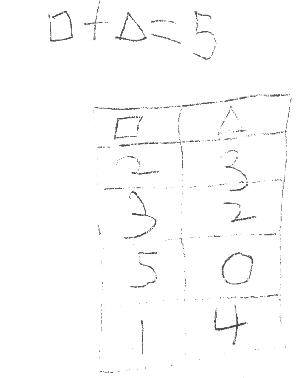 □ + △ = 5
□ △
2 3
3 2
5 0
1 4